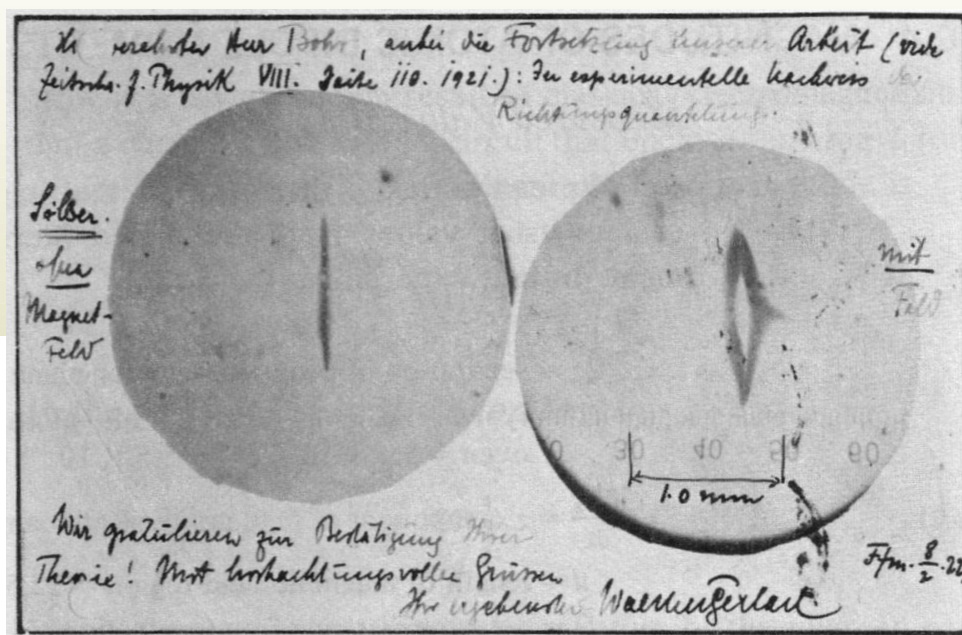 verehrter Herr Bohr, anbei die Fortsetzung unserer Arbeit (vide
Zeitschr. f. Physik VIII. Seite 110. 1921.): Der experimentelle Nachweis der
Richtungsquantelung.
Silber
ohne
Magnet-
Feld
mit
Feld
30 40 50 60
1.0 mm
Wir gratulieren zur Bestätigung Ihrer
Theorie! Mit hochachtungsvollen Grüssen
Ihr ergebenster Walther Gerlach
F/m. 8/2. 22